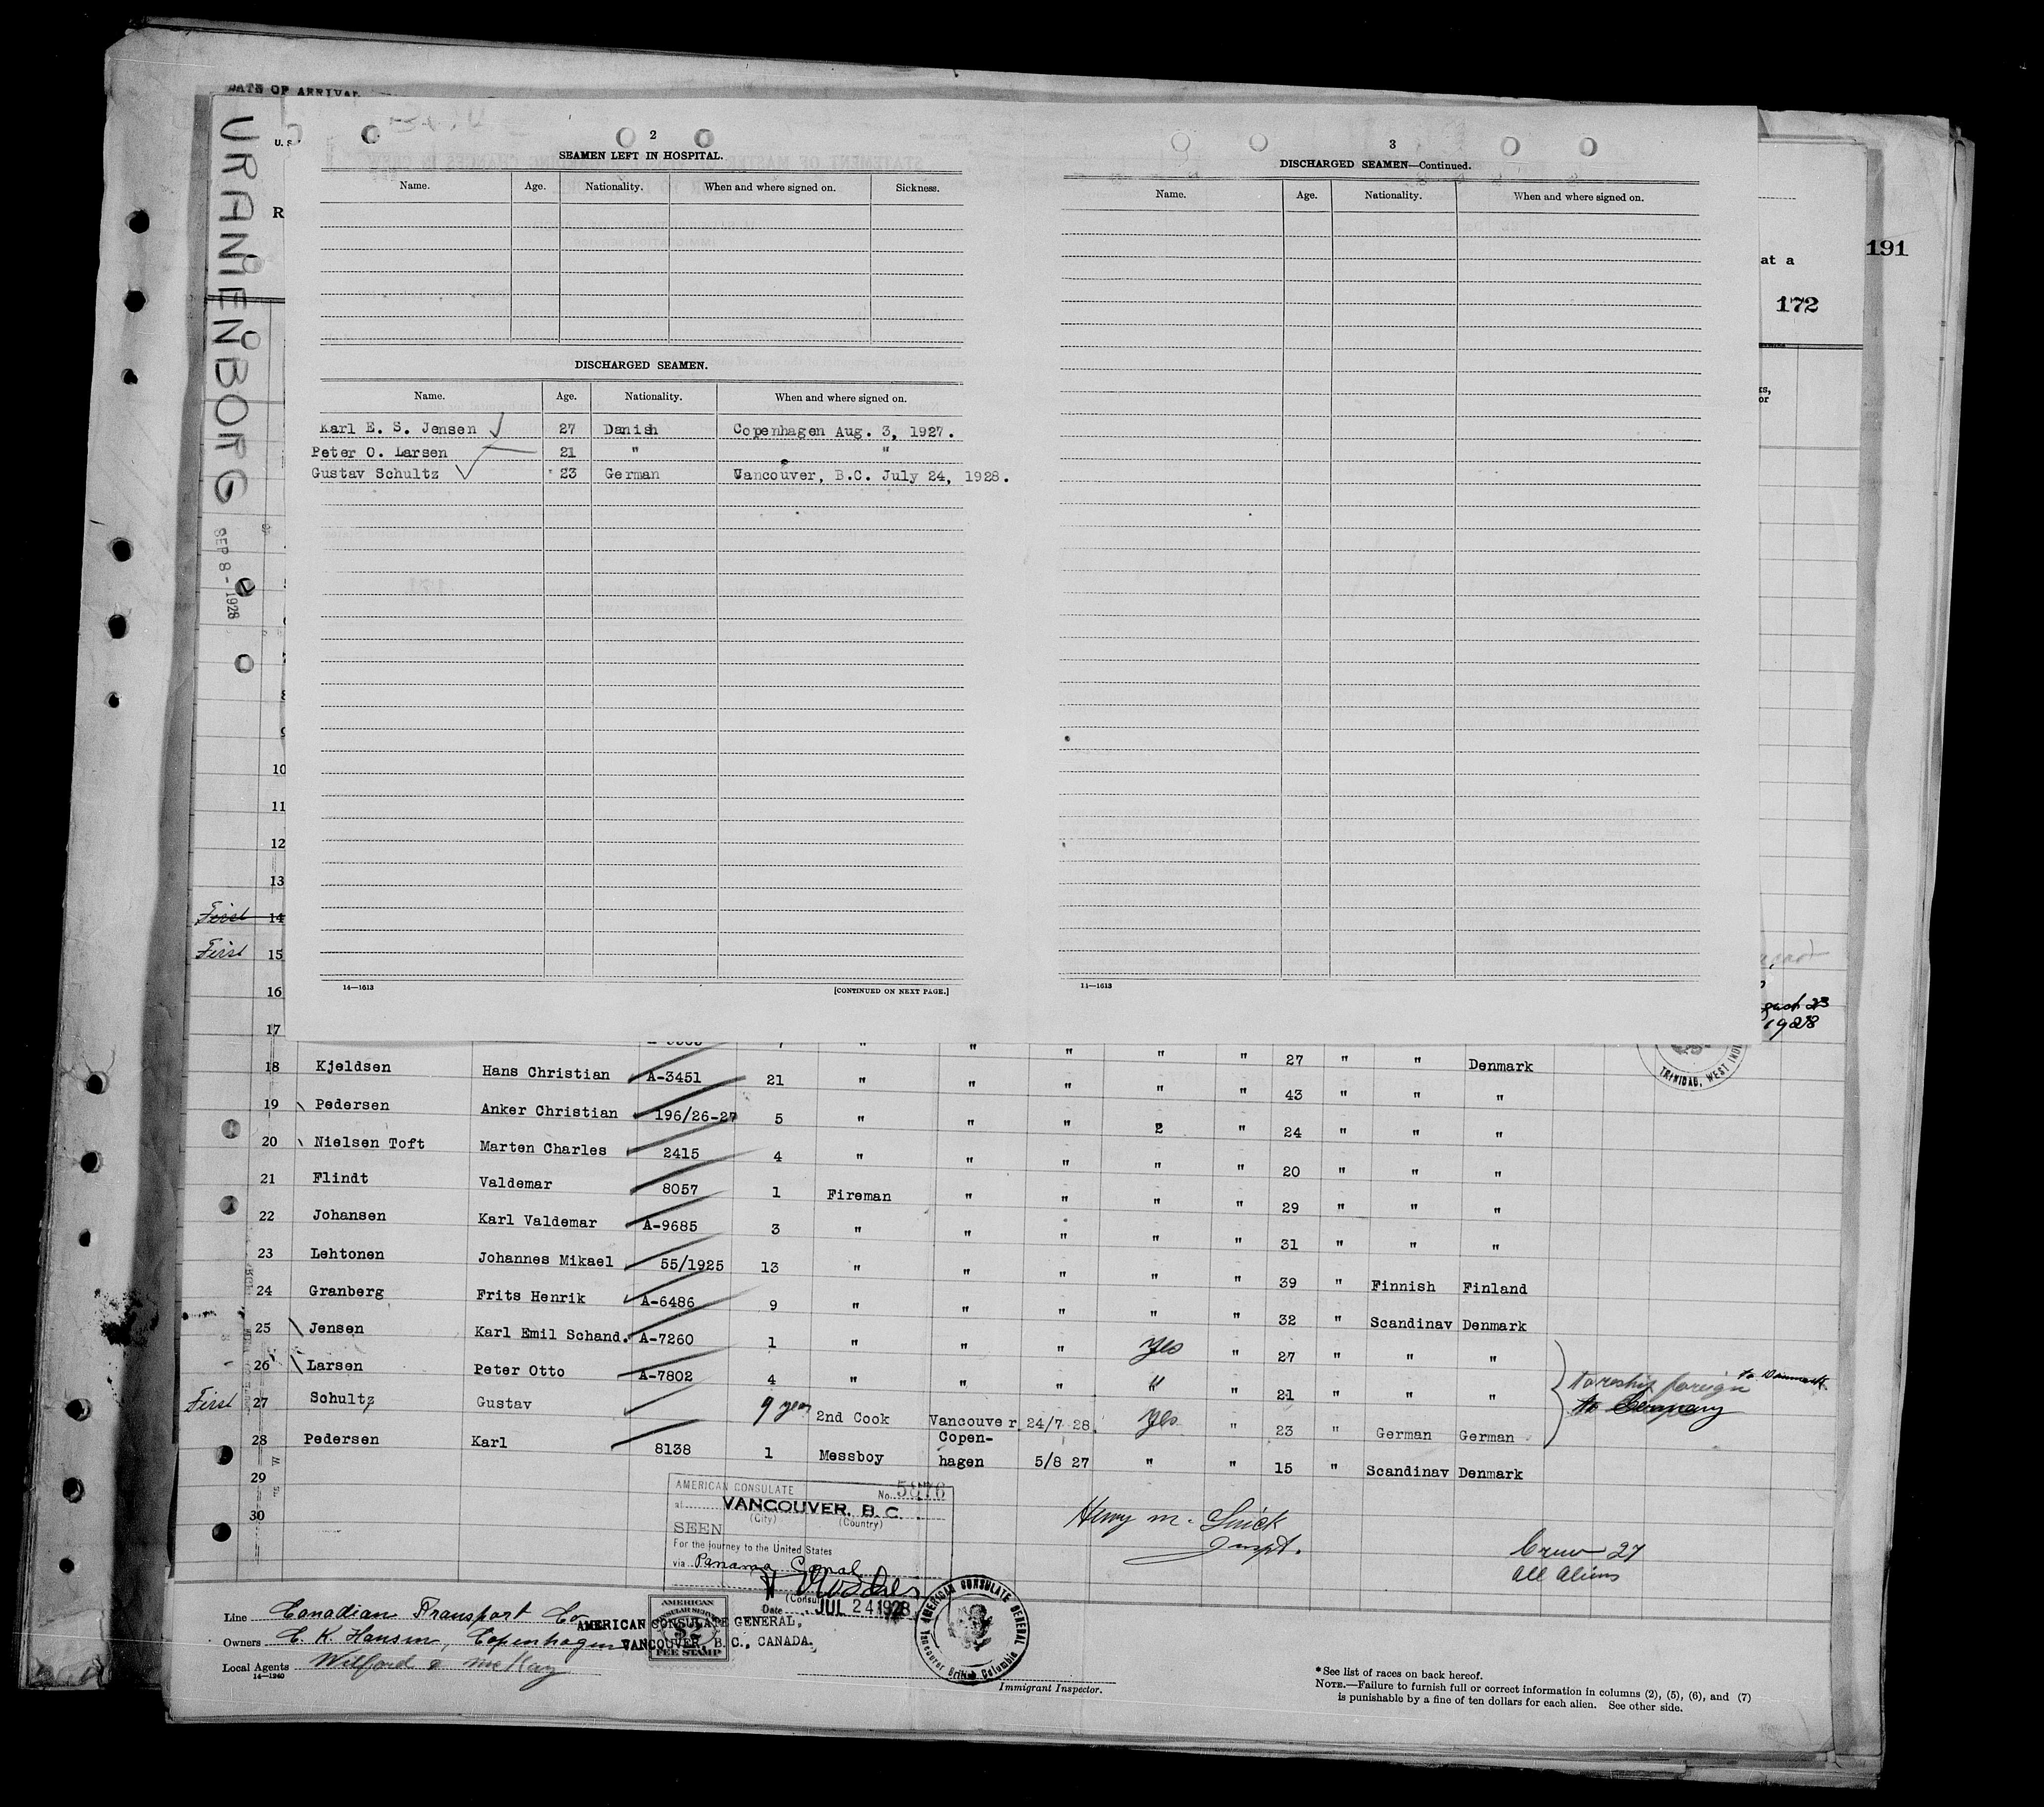 DATE OF ARRIVAL
URANIENBORG
SEP 8 - 1928
U. S
R
191
at a
172
2
SEAMEN LEFT IN HOSPITAL.
Name. Age. Nationality. When and where signed on. Sickness.
DISCHARGED SEAMEN.
Name. Age. Nationality. When and where signed on.
Karl E. S. Jensen 27 Danish Copenhagen Aug. 3, 1927.
Peter O. Larsen 21 " "
Gustav Schultz 23 German Vancouver, B.C. July 24, 1928.
14—1613 [CONTINUED ON NEXT PAGE.]
3
DISCHARGED SEAMEN—Continued.
Name. Age. Nationality. When and where signed on.
14—1613
10
11
12
13
First 14
First 15
16
17 " " " " " 27 " " Denmark
1928
TRINIDAD, WEST INDI
18 Kjeldsen Hans Christian A-3451 21 " " " " " 43 " " "
19 Pedersen Anker Christian 196/26-27 5 " " " 2 " 24 " " "
20 Nielsen Toft Marten Charles 2415 4 " " " " " 20 " " "
21 Flindt Valdemar 8057 1 Fireman " " " " 29 " " "
22 Johansen Karl Valdemar A-9685 3 " " " " " 31 " " "
23 Lehtonen Johannes Mikael 55/1925 13 " " " " " 39 " Finnish Finland
24 Granberg Frits Henrik A-6486 9 " " " " " 32 " Scandinav Denmark
25 Jensen Karl Emil Schand. A-7260 1 " " " yes " 27 " " "
26 Larsen Peter Otto A-7802 4 " " " " " 21 " " "
to reship foreign to Denmark
to Germany
First 27 Schultz Gustav 9 years 2nd Cook Vancouver 24/7 28. yes " 23 " German German
28 Pedersen Karl 8138 1 Messboy Copen-
hagen 5/8 27 " " 15 " Scandinav Denmark
29
30
AMERICAN CONSULATE No. 5876
at VANCOUVER, B. C.
(City) (Country)
SEEN
For the journey to the United States
via Panama Canal
(Consul
Date JUL 24 1928
Henry M.
Inspt.
Crew 27
All Aliens
Line Canadian Transport Co
Owners C. K. Hansen, Copenhagen
Local Agents Wilford & McKay
14—1240
AMERICAN CONSULATE GENERAL,
VANCOUVER, B. C., CANADA.
AMERICAN
CONSULAR SERVICE
$2
FEE STAMP
AMERICAN CONSULATE GENERAL
Vancouver British Columbia
Immigrant Inspector.
* See list of races on back hereof.
NOTE.—Failure to furnish full or correct information in columns (2), (5), (6), and (7)
is punishable by a fine of ten dollars for each alien. See other side.